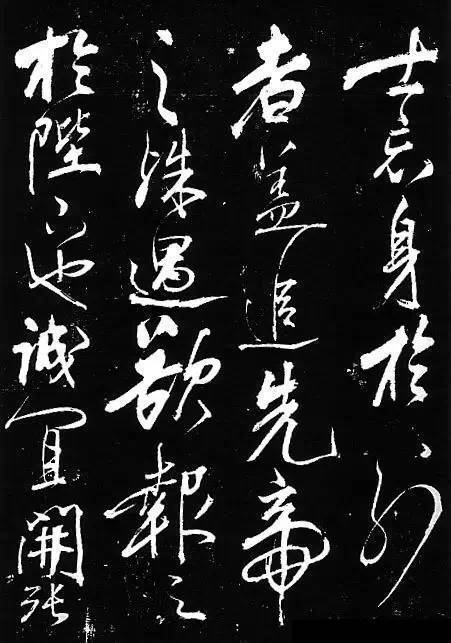 士忘身於外
者蓋追先帝
之殊遇欲報之
於陛下也誠宜開張